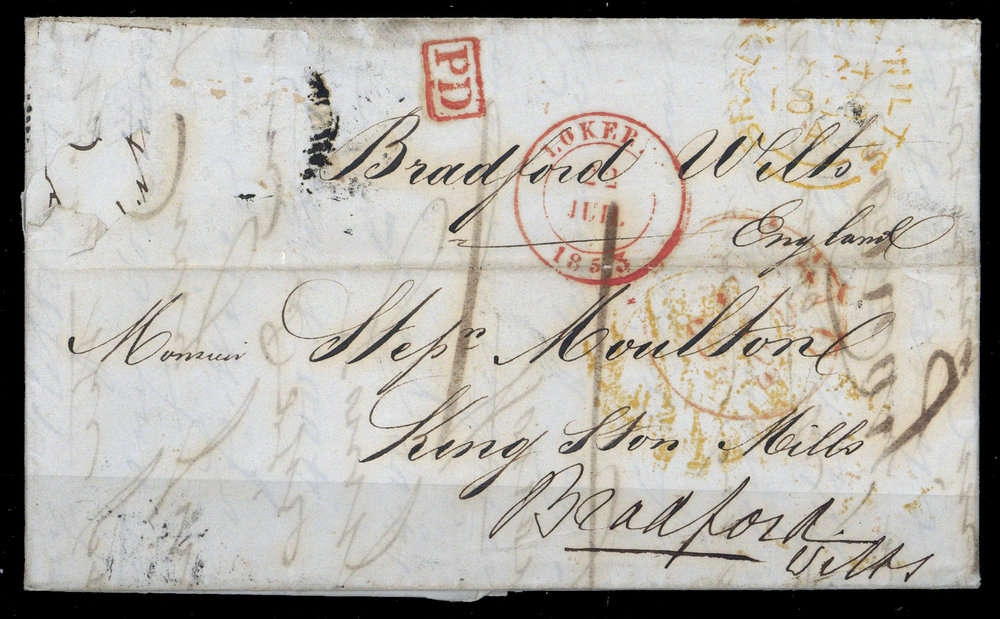 PD
LOKER.
JUIL
1853
Bradford Wilts
England
Monsieur Stepn Moulton
King Ston Mills
Bradford
Wilts